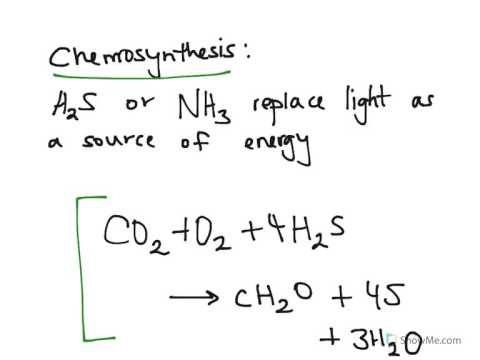 Chemosynthesis:
H₂S or NH₃ replace light as
a source of energy
CO₂ + O₂ + 4H₂S
→ CH₂O + 4S
+ 3H₂O
ShowMe.com